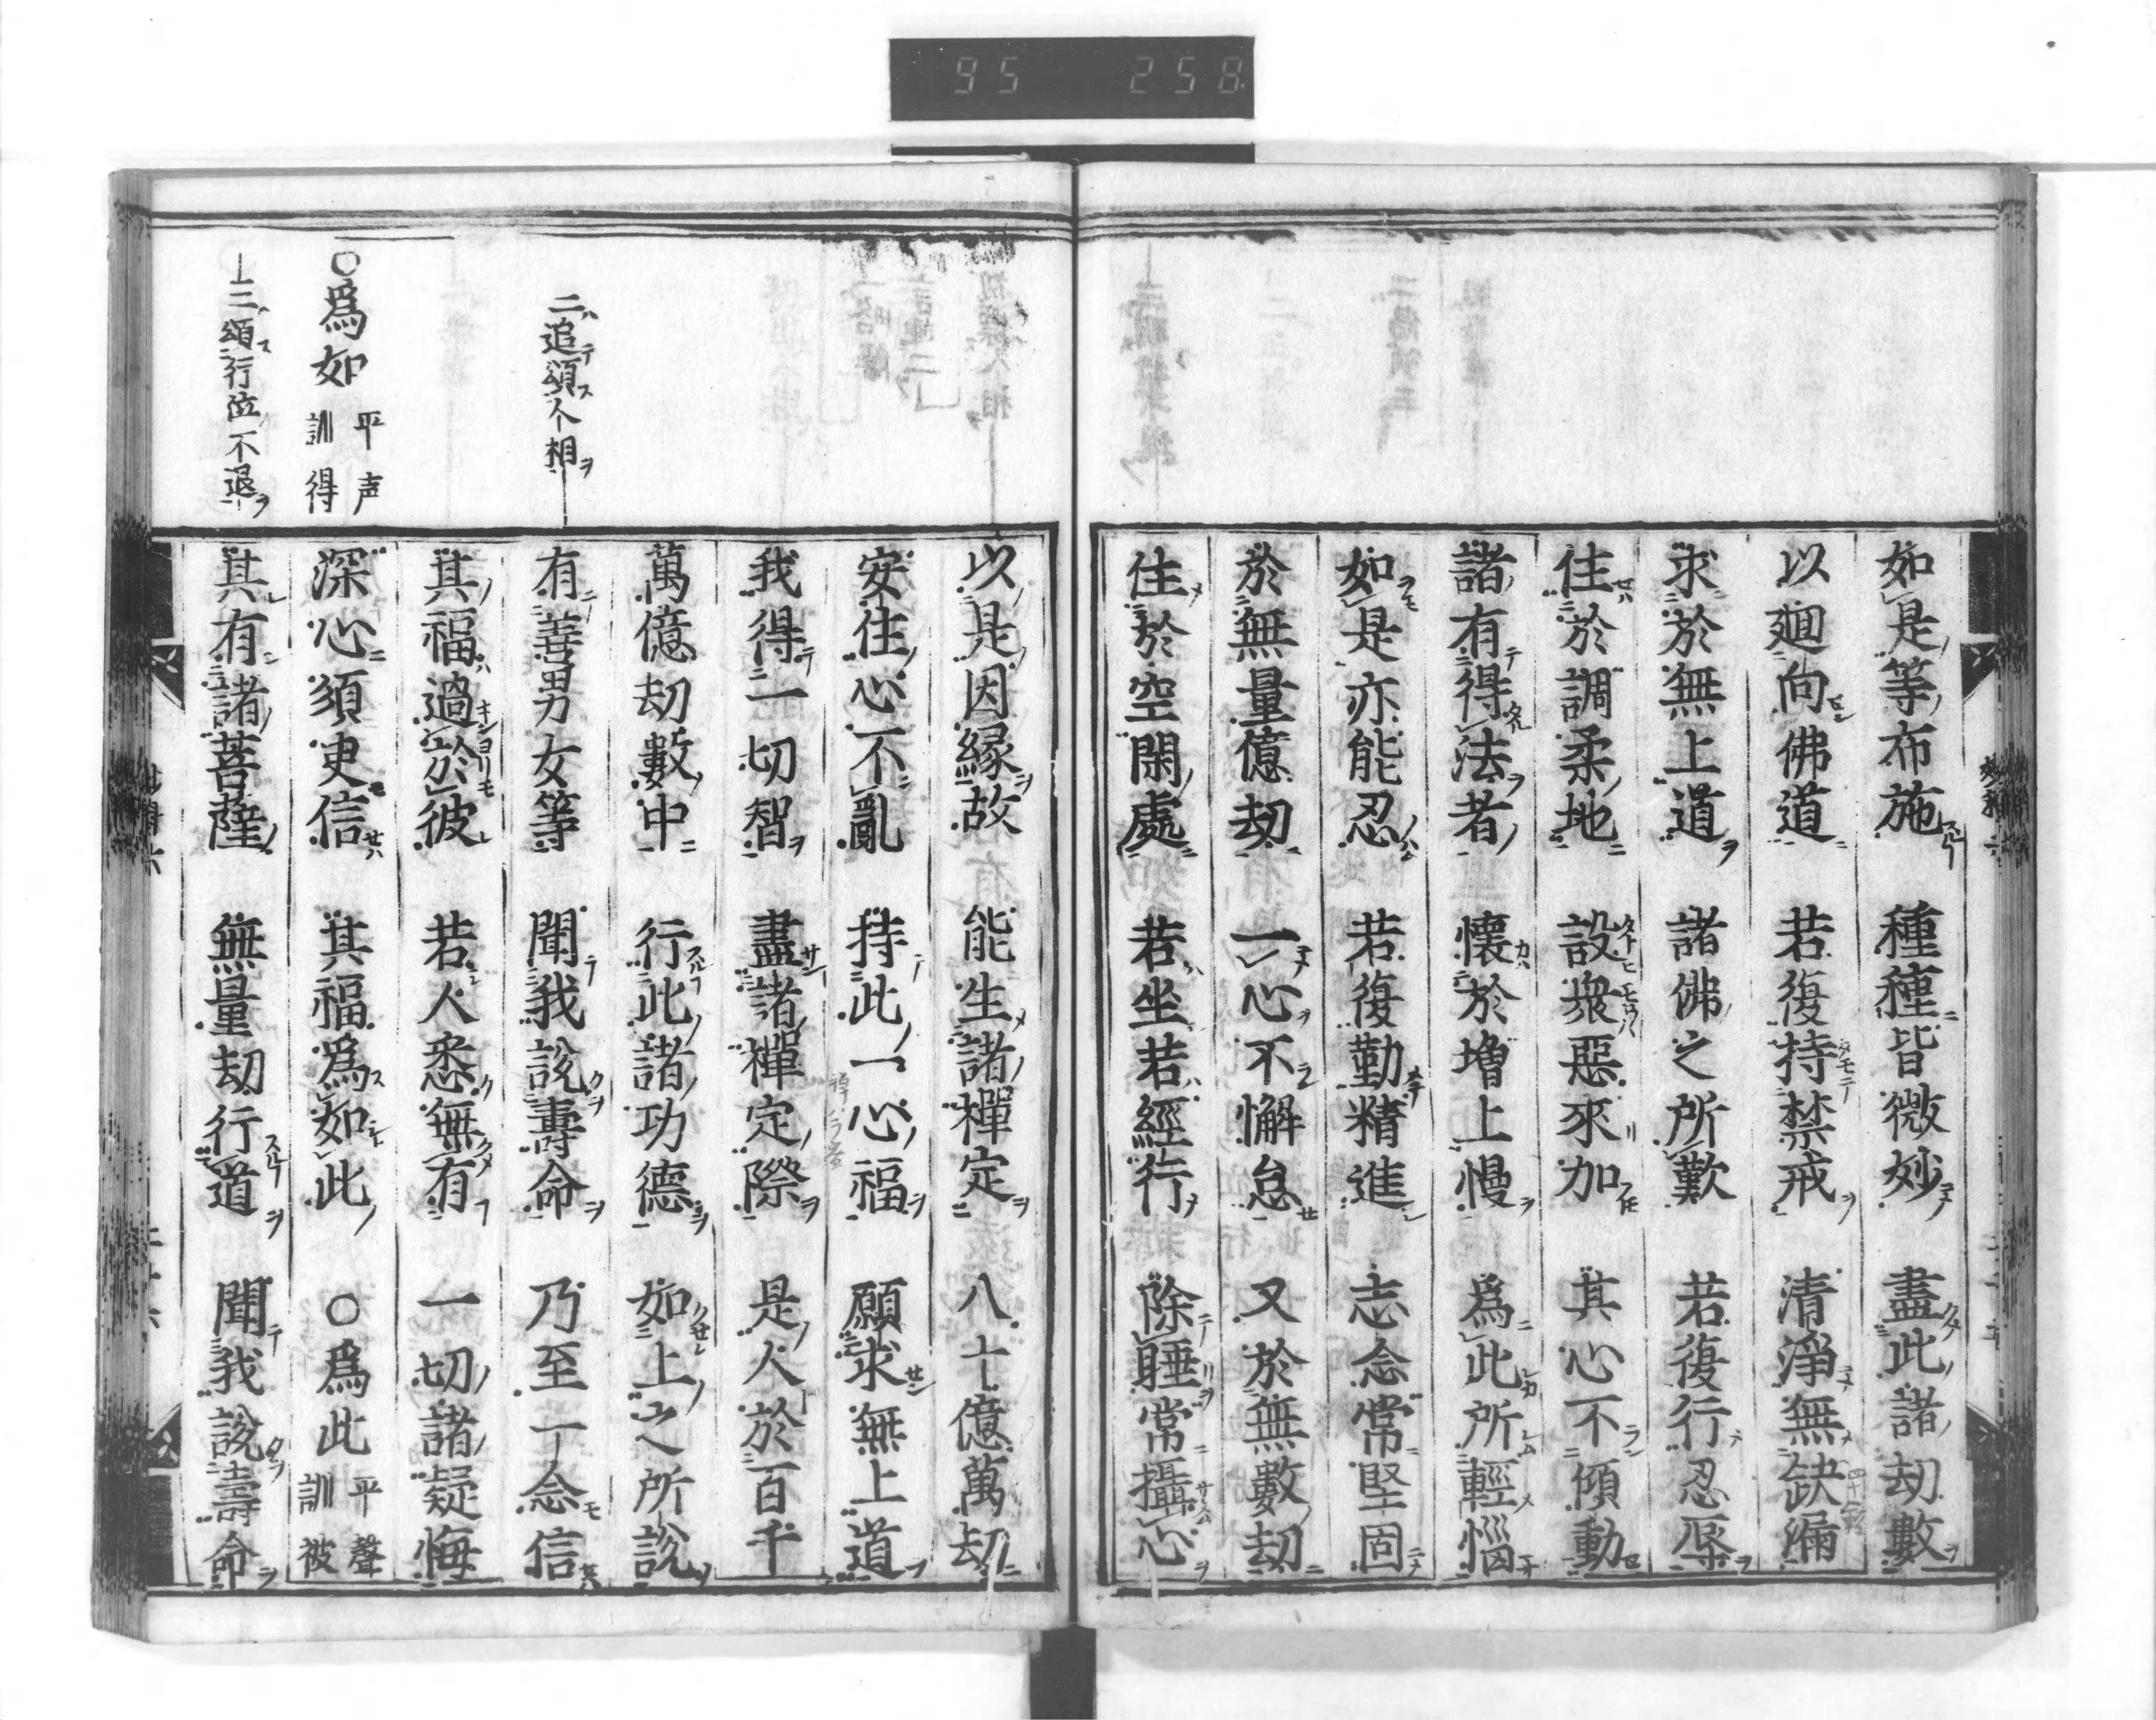 95 258
如是等布施 種種皆微妙 盡此諸劫數
以廻向佛道 若復持禁戒 清淨無缺漏
求於無上道 諸佛之所歎 若復行忍辱
住於調柔地 設衆惡來加 其心不傾動
諸有得法者 懷於增上慢 爲此所輕惱
如是亦能忍 若復勤精進 志念常堅固
於無量億劫 一心不懈怠 又於無數劫
住於空閑處 若坐若經行 除睡常攝心
以是因緣故 能生諸禪定 八十億萬劫
安住心不亂 持此一心福 願求無上道
我得一切智 盡諸禪定際 是人於百千
萬億劫數中 行此諸功德 如上之所說
二追頌人相
有善男女等 聞我說壽命 乃至一念信
其福過於彼 若人悉無有 一切諸疑悔
○爲如 平声 訓得
深心須臾信 其福爲如此 ○爲此 平聲 訓被
三頌行位不退
其有諸菩薩 無量劫行道 聞我說壽命